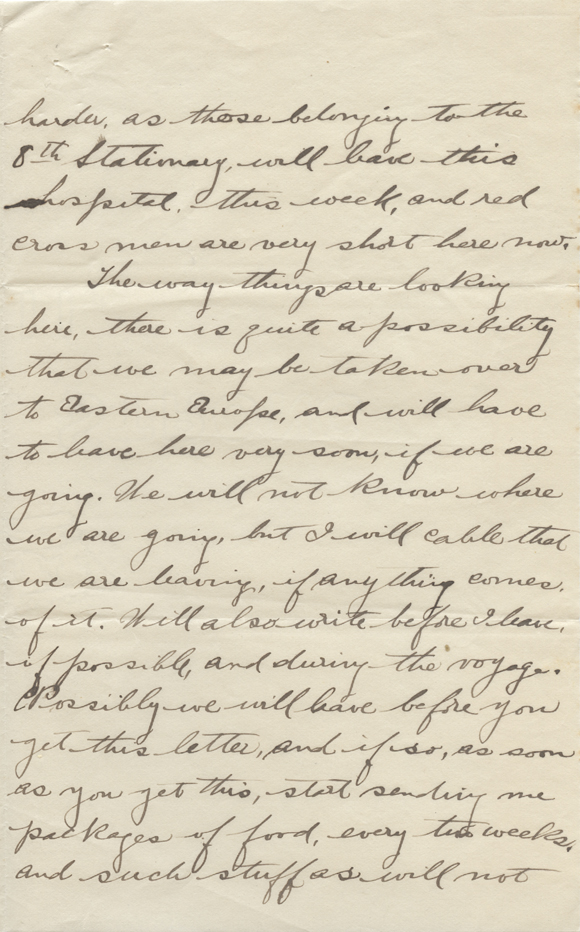 harder, as those belonging to the
8th Stationary, will leave this
hospital, this week, and red
cross men are very short here now.
The way things are looking
here, there is quite a possibility
that we may be taken over
to Eastern Europe, and will have
to leave here very soon, if we are
going. We will not know where
we are going, but I will cable that
we are leaving, if anything comes.
of it. Will also write before I leave,
if possible, and during the voyage.
Possibly we will leave before you
get this letter, and if so, as soon
as you get this, start sending me
packages of food, every two weeks.
and such stuff as will not